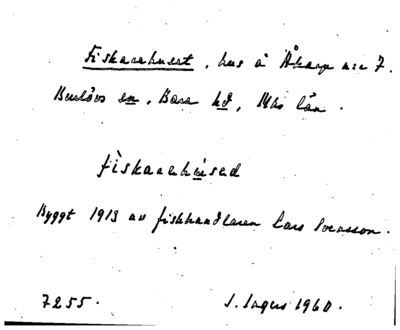 Fiskarehuset, hus å Åkarp n:r 7.
Burlövs sn, Bara hd, Mhs län.
fiskarehúsed
Byggt 1913 av fiskhandlaren Lars Svensson.
7255. S. Ingers 1960.